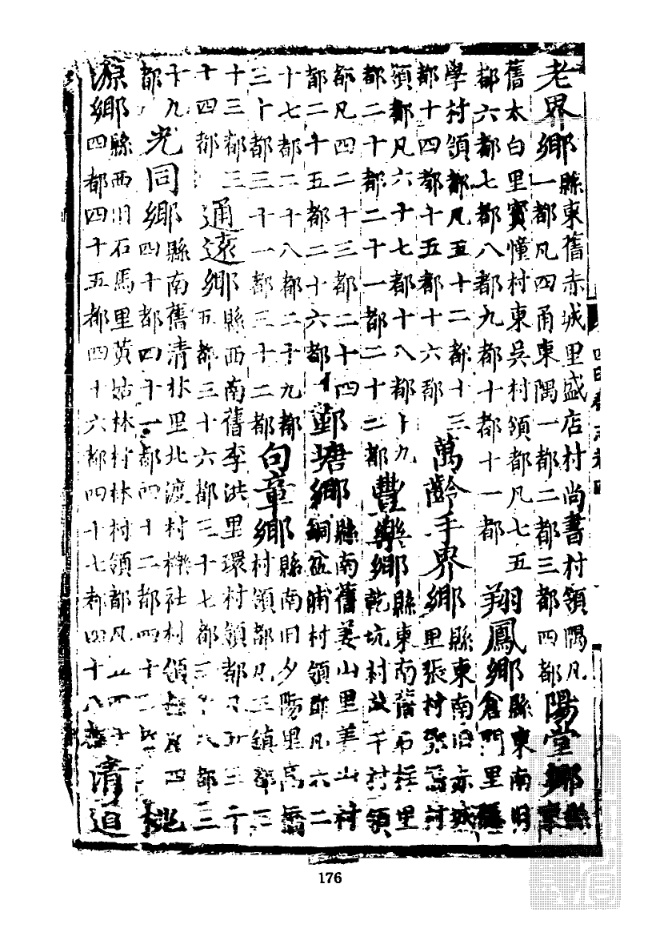 老界鄉縣東舊赤城里盛店村尚書村領隅凡
一都凡四甬東隅一都二都三都四都陽堂鄉縣東
舊太白里寶幢村東吳村領都凡七五
都六都七都八都九都十都十一都翔鳳鄉縣東南旧
倉門里
學村領都凡五十二都十三
都十四都十五都十六都萬齡手界鄉縣東南旧赤城
里張村
領都凡六十七都十八都十九
都二十都二十一都二十二都豐樂鄉縣東南舊石柱里
乾坑村 千村領
都凡四二十三都二十四
都二十五都二十六都鄞塘鄉縣南舊姜山里姜山村
銅盆浦村領都凡六二
十七都二十八都二十九都
三十都三十一都三十二都句章鄉縣南旧夕陽里高橋
村領都凡三鎮都三
十三都三
十四都通遠鄉縣西南舊李洪里環村領都凡五三十
五都三十六都三十七都三十八都三
十九
都光同鄉縣南舊清林里北渡村櫟社村領都凡四
四十都四十一都四十二都四十三都桃
源鄉縣西旧石馬里黃姑林村林村領都凡五四十
四都四十五都四十六都四十七都四十八都清道
176